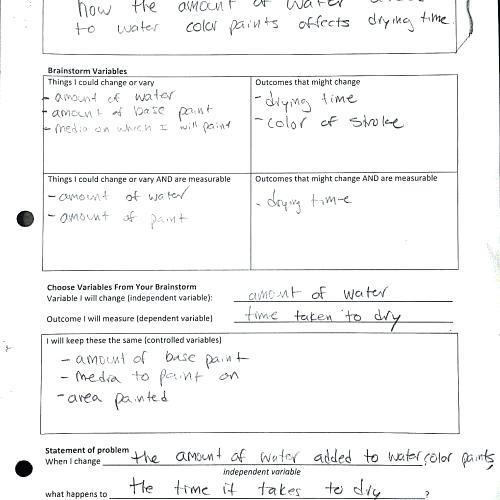 how the amount of water
to water color paints affects drying time.
Brainstorm Variables
Things I could change or vary
- amount of water
- amount of base paint
- media on which I will paint
Outcomes that might change
- drying time
- color of stroke
Things I could change or vary AND are measurable
- amount of water
- amount of paint
Outcomes that might change AND are measurable
- drying time
Choose Variables From Your Brainstorm
Variable I will change (independent variable): amount of water
Outcome I will measure (dependent variable) time taken to dry
I will keep these the same (controlled variables)
- amount of base paint
- media to paint on
- area painted
Statement of problem
When I change the amount of water added to water color paints,
independent variable
what happens to the time it takes to dry ?